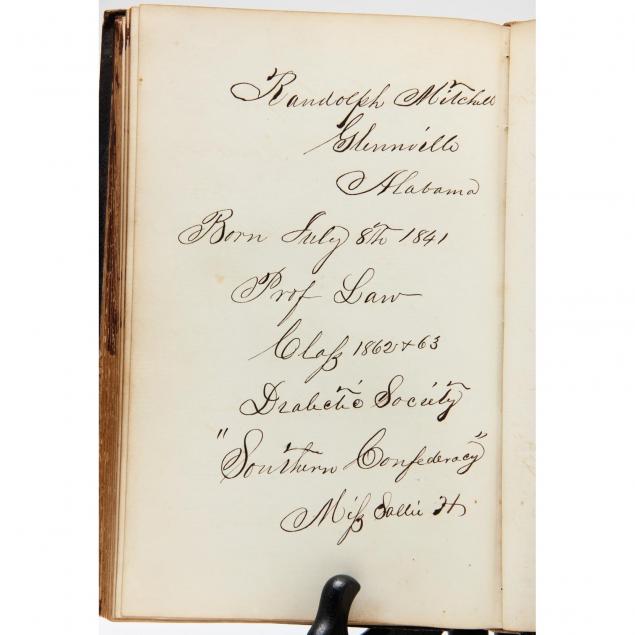 Randolph Mitchell
Glennville
Alabama
Born July 8th 1841
Prof Law
Claſs 1862 + 63
Dialectic Society
"Southern Confederacy"
Miſs Sallie H